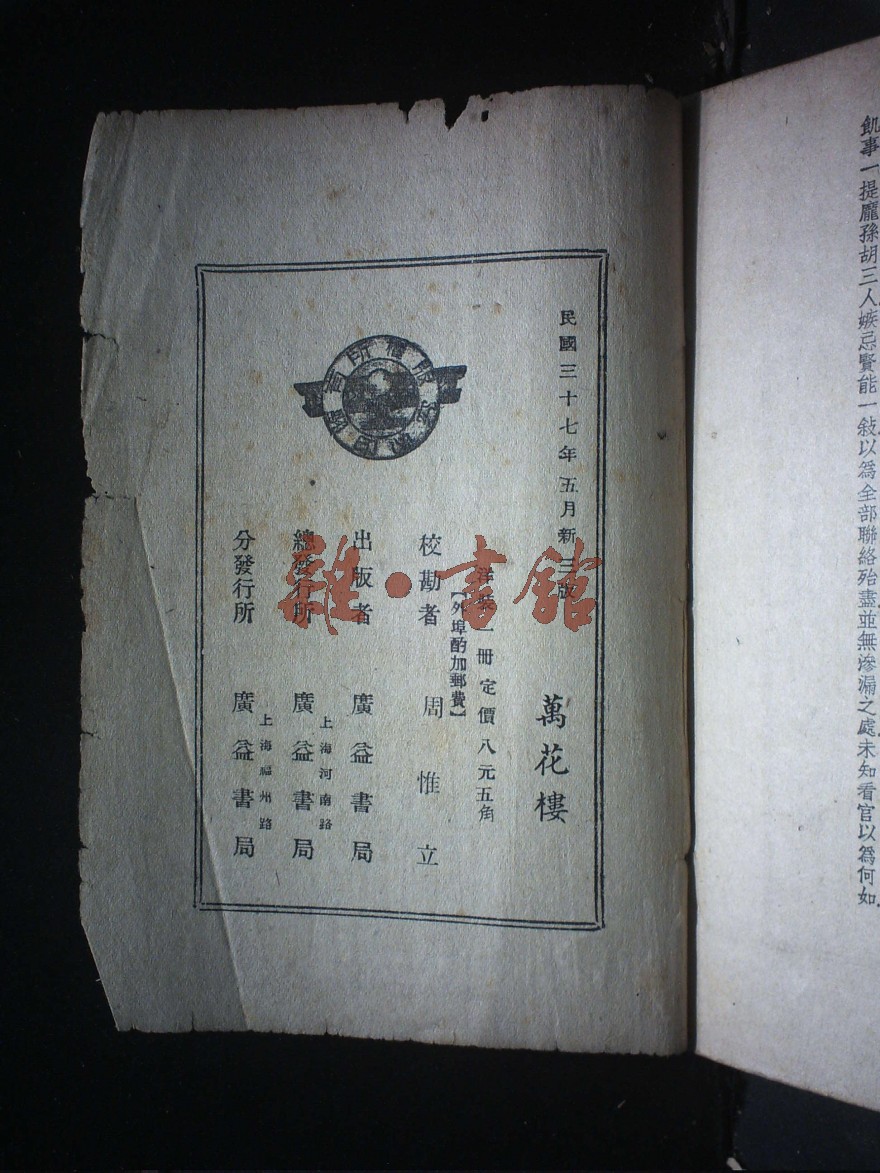 飢事一提龐孫胡三人嫉忌賢能一敍以爲全部聯絡殆盡並無滲漏之處未知看官以爲何如
民國三十七年五月新三版
萬花樓
洋裝一冊定價八元五角
【外埠酌加郵費】
校勘者 周惟立
出版者 廣益書局
上海河南路
總發行所 廣益書局
上海福州路
分發行所 廣益書局
版權所有
雜·書館